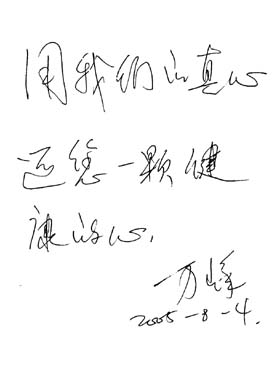 用我们的真心
还您一颗健
康的心.
万峰
2005-8-4.